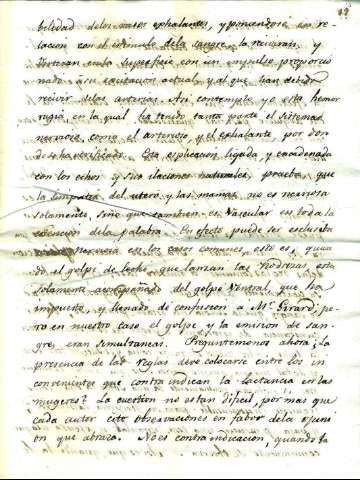 bilidad de los vasos exhalantes, y poniendose en re-
lacion con el estimulo de la sangre, la reciviran, y
verteran en la superficie con un impulso proporcio
nado á su exitacion actual, y al que han devido
recivir de las arterias. Asi contemplo yo esta hemor
ragia en la qual ha tenido tanta parte el sistema
nervioso, como el arterioso, y el exhalante por don
de se ha verificado. Esta esplicacion ligada, y encadenada
con los echos y sus ilaciones naturales, prueba, que
la simpatia del utero, y las mamas no es nerviosa
solamente, sino que tambien es vascular en toda la
estencion de la palabra. En efecto puede ser esclusiba
nerviosa en los casos comunes, esto es, quan
do el golpe de leche que lanzan las nodrizas esta
solamente acompañado del golpe ventral, que ha
impuesto, y llenado de confusion á Mr. Girard; pe
ro en nuestro caso el golpe y la emision de san-
gre, eran simultaneas. Preguntemos ahora ¿la
presencia de las reglas deve colocarse entre los in
convenientes que contraindican la lactancia en las
mugeres? La cuestion no es tan dificil, por mas que
cada autor cite observaciones en fabor de la opini
on que abraza. No es contraindicacion, quando la